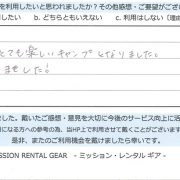 を利用したいと思われましたか？その他感想・ご要望がござ
い  b. どちらともいえない  c. 利用はしない（理由
とても楽しいキャンプとなりました。
ました!
した。戴いたご感想・意見を大切に今後のサービス向上に活
用になる方への参考の為、当HP上で利用させて戴くことがございます
是非、またのご利用機会を戴けましたら幸いです。
SSION RENTAL GEAR - ミッション・レンタル ギア -